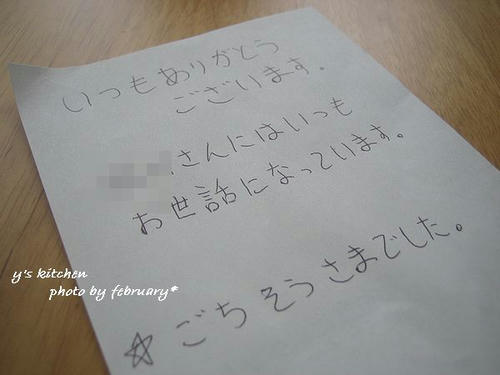 いつもありがとう
ございます。
さんにはいつも
お世話になっています。
☆ごちそうさまでした。
y's kitchen
photo by february*